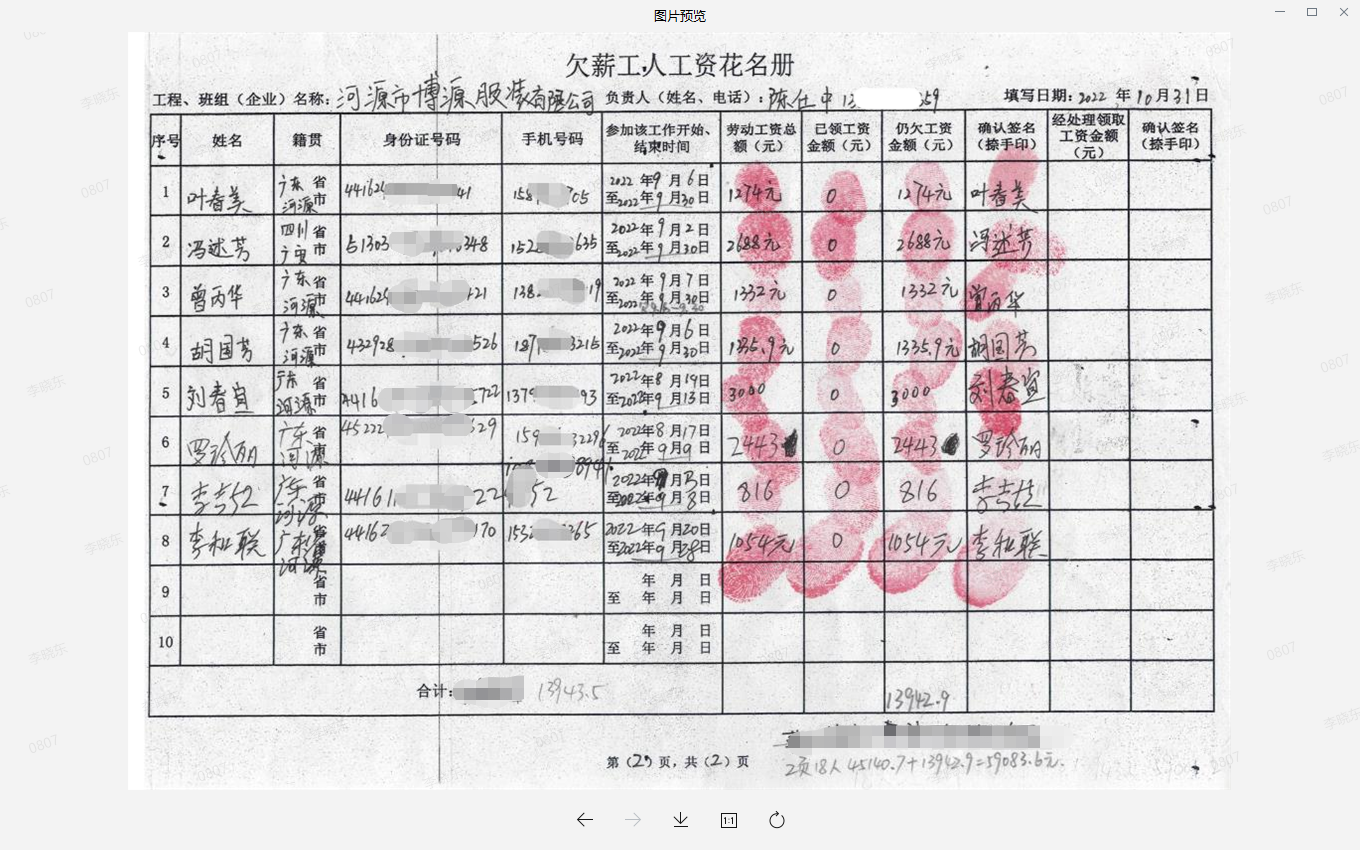 图片预览
欠薪工人工资花名册
工程、班组（企业）名称：河源市博源服装有限公司 负责人（姓名、电话）：陈仕中 13 359 填写日期：2022 年 10 月 31 日
序号 姓名 籍贯 身份证号码 手机号码 参加该工作开始、结束时间 劳动工资总额（元） 已领工资金额（元） 仍欠工资金额（元） 确认签名（捺手印） 经处理领取工资金额（元） 确认签名（捺手印）
1 叶春美 广东省河源市 441624 41 158 705 2022年9月6日至2022年9月30日 1274元 0 1274元 叶春美
2 冯述芳 四川省广安市 51303 348 152 635 2022年9月2日至2022年9月30日 2688元 0 2688元 冯述芳
3 曾丙华 广东省河源市 441624 121 138 19 2022年9月7日至2022年9月30日 1332元 0 1332元 曾丙华
4 胡国芳 广东省河源市 432928 526 187 3215 2022年9月6日至2022年9月30日 1335.9元 0 1335.9元 胡国芳
5 刘春宜 广东省河源市 4416 5722 1379 93 2022年8月19日至2022年9月13日 3000 0 3000 刘春宜
6 广东省河源 45222 529 159 3229 2022年8月17日至2022年9月9日 2443 0 2443
7 广东省河源市 44161 22 52 2022年 月3日至2022年9月8日 816 0 816
8 李和联 广东省河源 44162 170 153 265 2022年9月20日至2022年9月28日 1054元 0 1054元 李和联
9 省市 年 月 日至 年 月 日
10 省市 年 月 日至 年 月 日
合计： 13943.5 13942.9
第（2）页，共（2）页
2页18人 45140.7+13942.9=59083.6元.
1:1
李晓东
0807